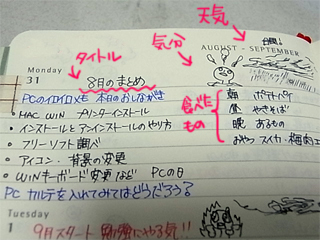 天気
気分
タイトル
AUGUST - SEPTEMBER
Monday
31
8月のまとめ
PCのイロイロメモ 本日のおしながき
食べたもの
朝 ポテトパイ
昼 やきそば
晩 あるもの
おやつ スイカ
・MAC WIN プリンターインストール
・インストールとアンインストールのやり方
・フリーソフト調べ
・アイコン・背景の変更
・WINキーボード変更など PCの日
PC カルテを入れてみてはどうだろう?
Tuesday
1
9月スタート にやる気!!